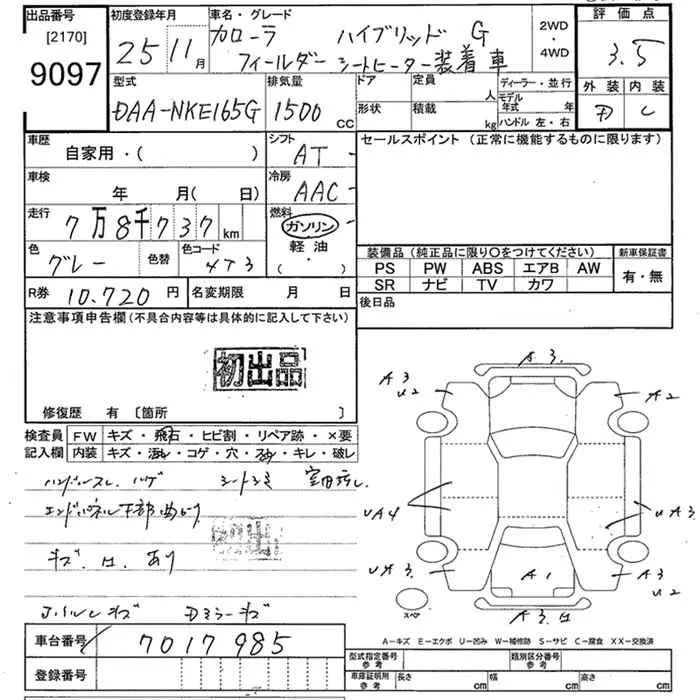 出品番号
[2170]
9097
初度登録年月
25 11月
車名・グレード
カローラ ハイブリッド G
フィールダー シートヒーター装着車
2WD
・
4WD
評価点
3.5
外装 内装
D C
型式
DAA-NKE165G
排気量
1500 CC
ドア
形状
定員
人
積載
kg
ディーラー・並行
モデル年式 年
ハンドル 左・右
車歴
自家用・( )
シフト
AT
車検
年 月( 日)
冷房
AAC
走行
7万8千737km
燃料
ガソリン
軽油
( ・ )
色
グレー
色替
色コード
4T3
R券 10.720円
名変期限 月 日
セールスポイント (正常に機能するものに限ります)
装備品 (純正品に限り○をつけてください)
PS PW ABS エアB AW
SR ナビ TV カワ
新車保証書
有・無
後日品
注意事項申告欄(不具合内容等は具体的に記入して下さい)
初出品
修復歴 有 〔箇所 〕
検査員記入欄
FW キズ・飛石・ヒビ割・リペア跡・×要
内装 キズ・汚れ・コゲ・穴・スレ・キレ・破レ
ハンドルスレ、ハゲ シートシミ
エンドパネル下部曲がり
初出品
キズ、凹、あり
Dミラーキズ
車台番号 7017985
登録番号
A3.
A3
U2
A2
UA4
UA3
UA3.
A1
A3
U2
A3.凹
スペア
A－キズ E－エクボ U－凹み W－補修跡 S－サビ C－腐食 XX－交換済
型式指定番号
参考
類別区分番号
参考
車庫証明用
参考
長さ cm
幅 cm
高さ cm